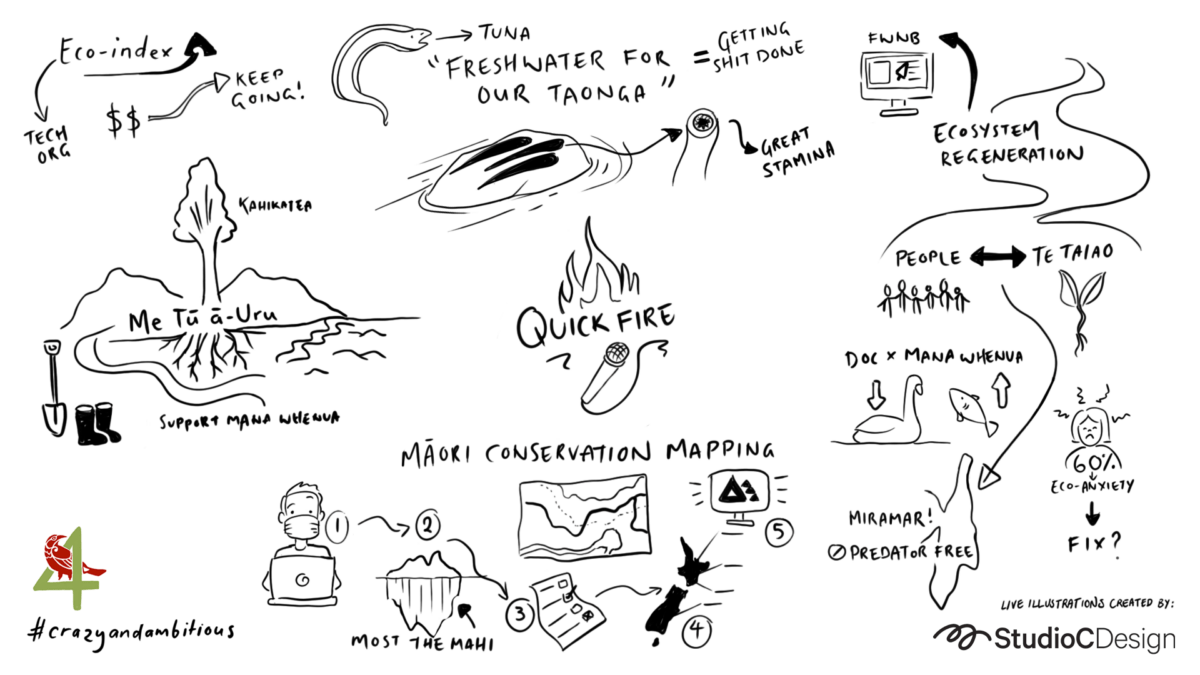 Eco-index
TECH
ORG
$$
KEEP
GOING!
TUNA
"FRESHWATER FOR
OUR TAONGA"
= GETTING
SHIT DONE
GREAT
STAMINA
FWNB
ECOSYSTEM
REGENERATION
KAHIKATEA
Me Tū ā-Uru
SUPPORT MANA WHENUA
QUICK FIRE
PEOPLE
TE TAIAO
DOC x MANA WHENUA
60%
ECO-ANXIETY
FIX?
MIRAMAR!
PREDATOR FREE
MĀORI CONSERVATION MAPPING
1
2
MOST THE MAHI
3
4
5
4
#crazyandambitious
LIVE ILLUSTRATIONS CREATED BY:
StudioCDesign